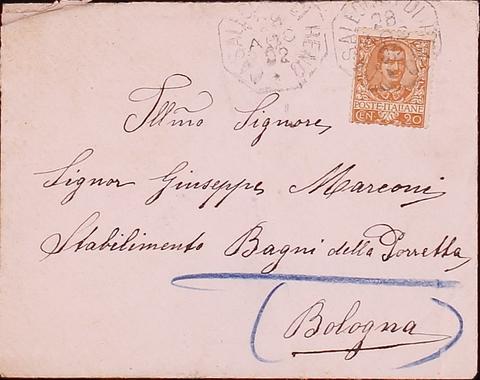 SALE
DI RENO
7
02
SALE
DI
28
POSTE ITALIANE
CEN. 20
Illmo Signore,
Signor Giuseppe Marconi,
Stabilimento Bagni della Porretta,
(Bologna)